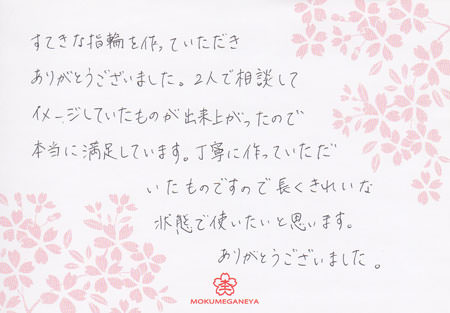 すてきな指輪を作っていただき
ありがとうございました。2人で相談して
イメージしていたものが出来上がったので
本当に満足しています。丁寧に作っていただ
いたものですので長くきれいな
状態で使いたいと思います。
ありがとうございました。
MOKUMEGANEYA